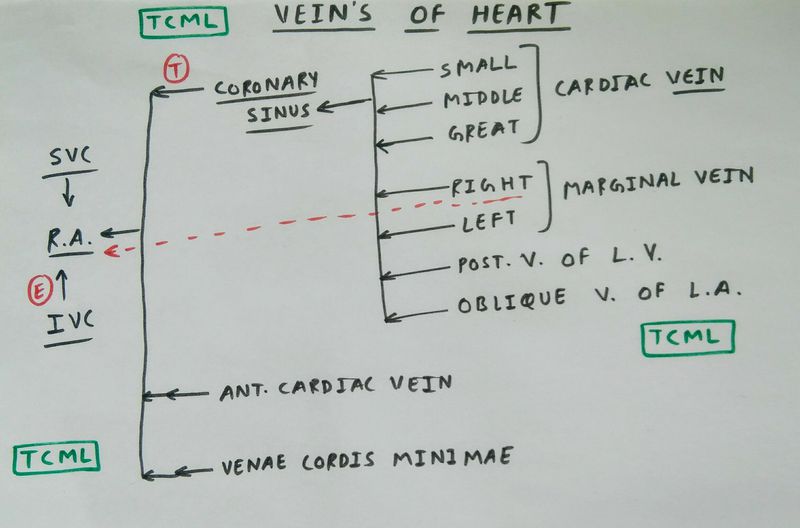 TCML VEIN'S OF HEART
T
CORONARY
SINUS
SMALL
MIDDLE
GREAT
CARDIAC VEIN
RIGHT
LEFT
MARGINAL VEIN
POST. V. OF L.V.
OBLIQUE V. OF L.A.
SVC
R.A.
E
IVC
TCML
ANT. CARDIAC VEIN
TCML
VENAE CORDIS MINIMAE